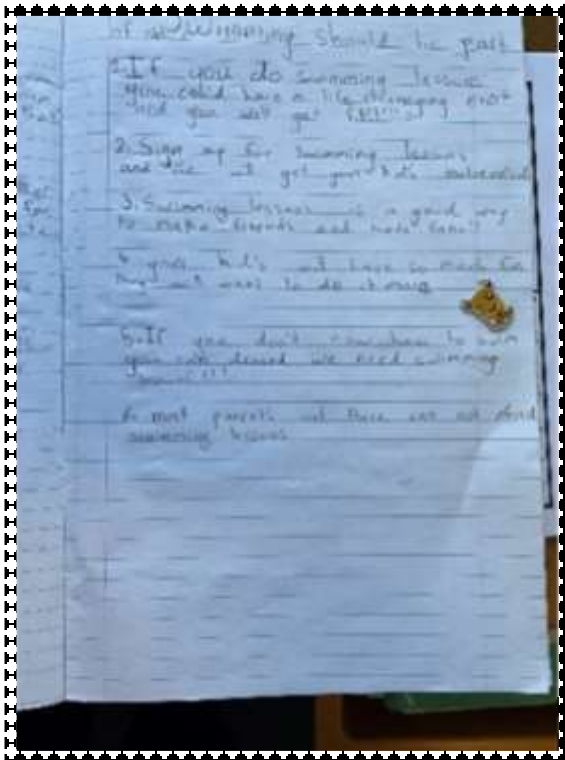 Swimming should be part
1. If you do swimming lessons
you could have a life changing
and you will get
2. Sign up for swimming lessons
and will get your kid's
3. Swimming lessons is a good way
to make friends and have fun
4. your kid's will have so much fun
want to do it more
5. If you don't know how to swim
you can we need swimming
lessons!!!
6. most parents out there can not afford
swimming lessons